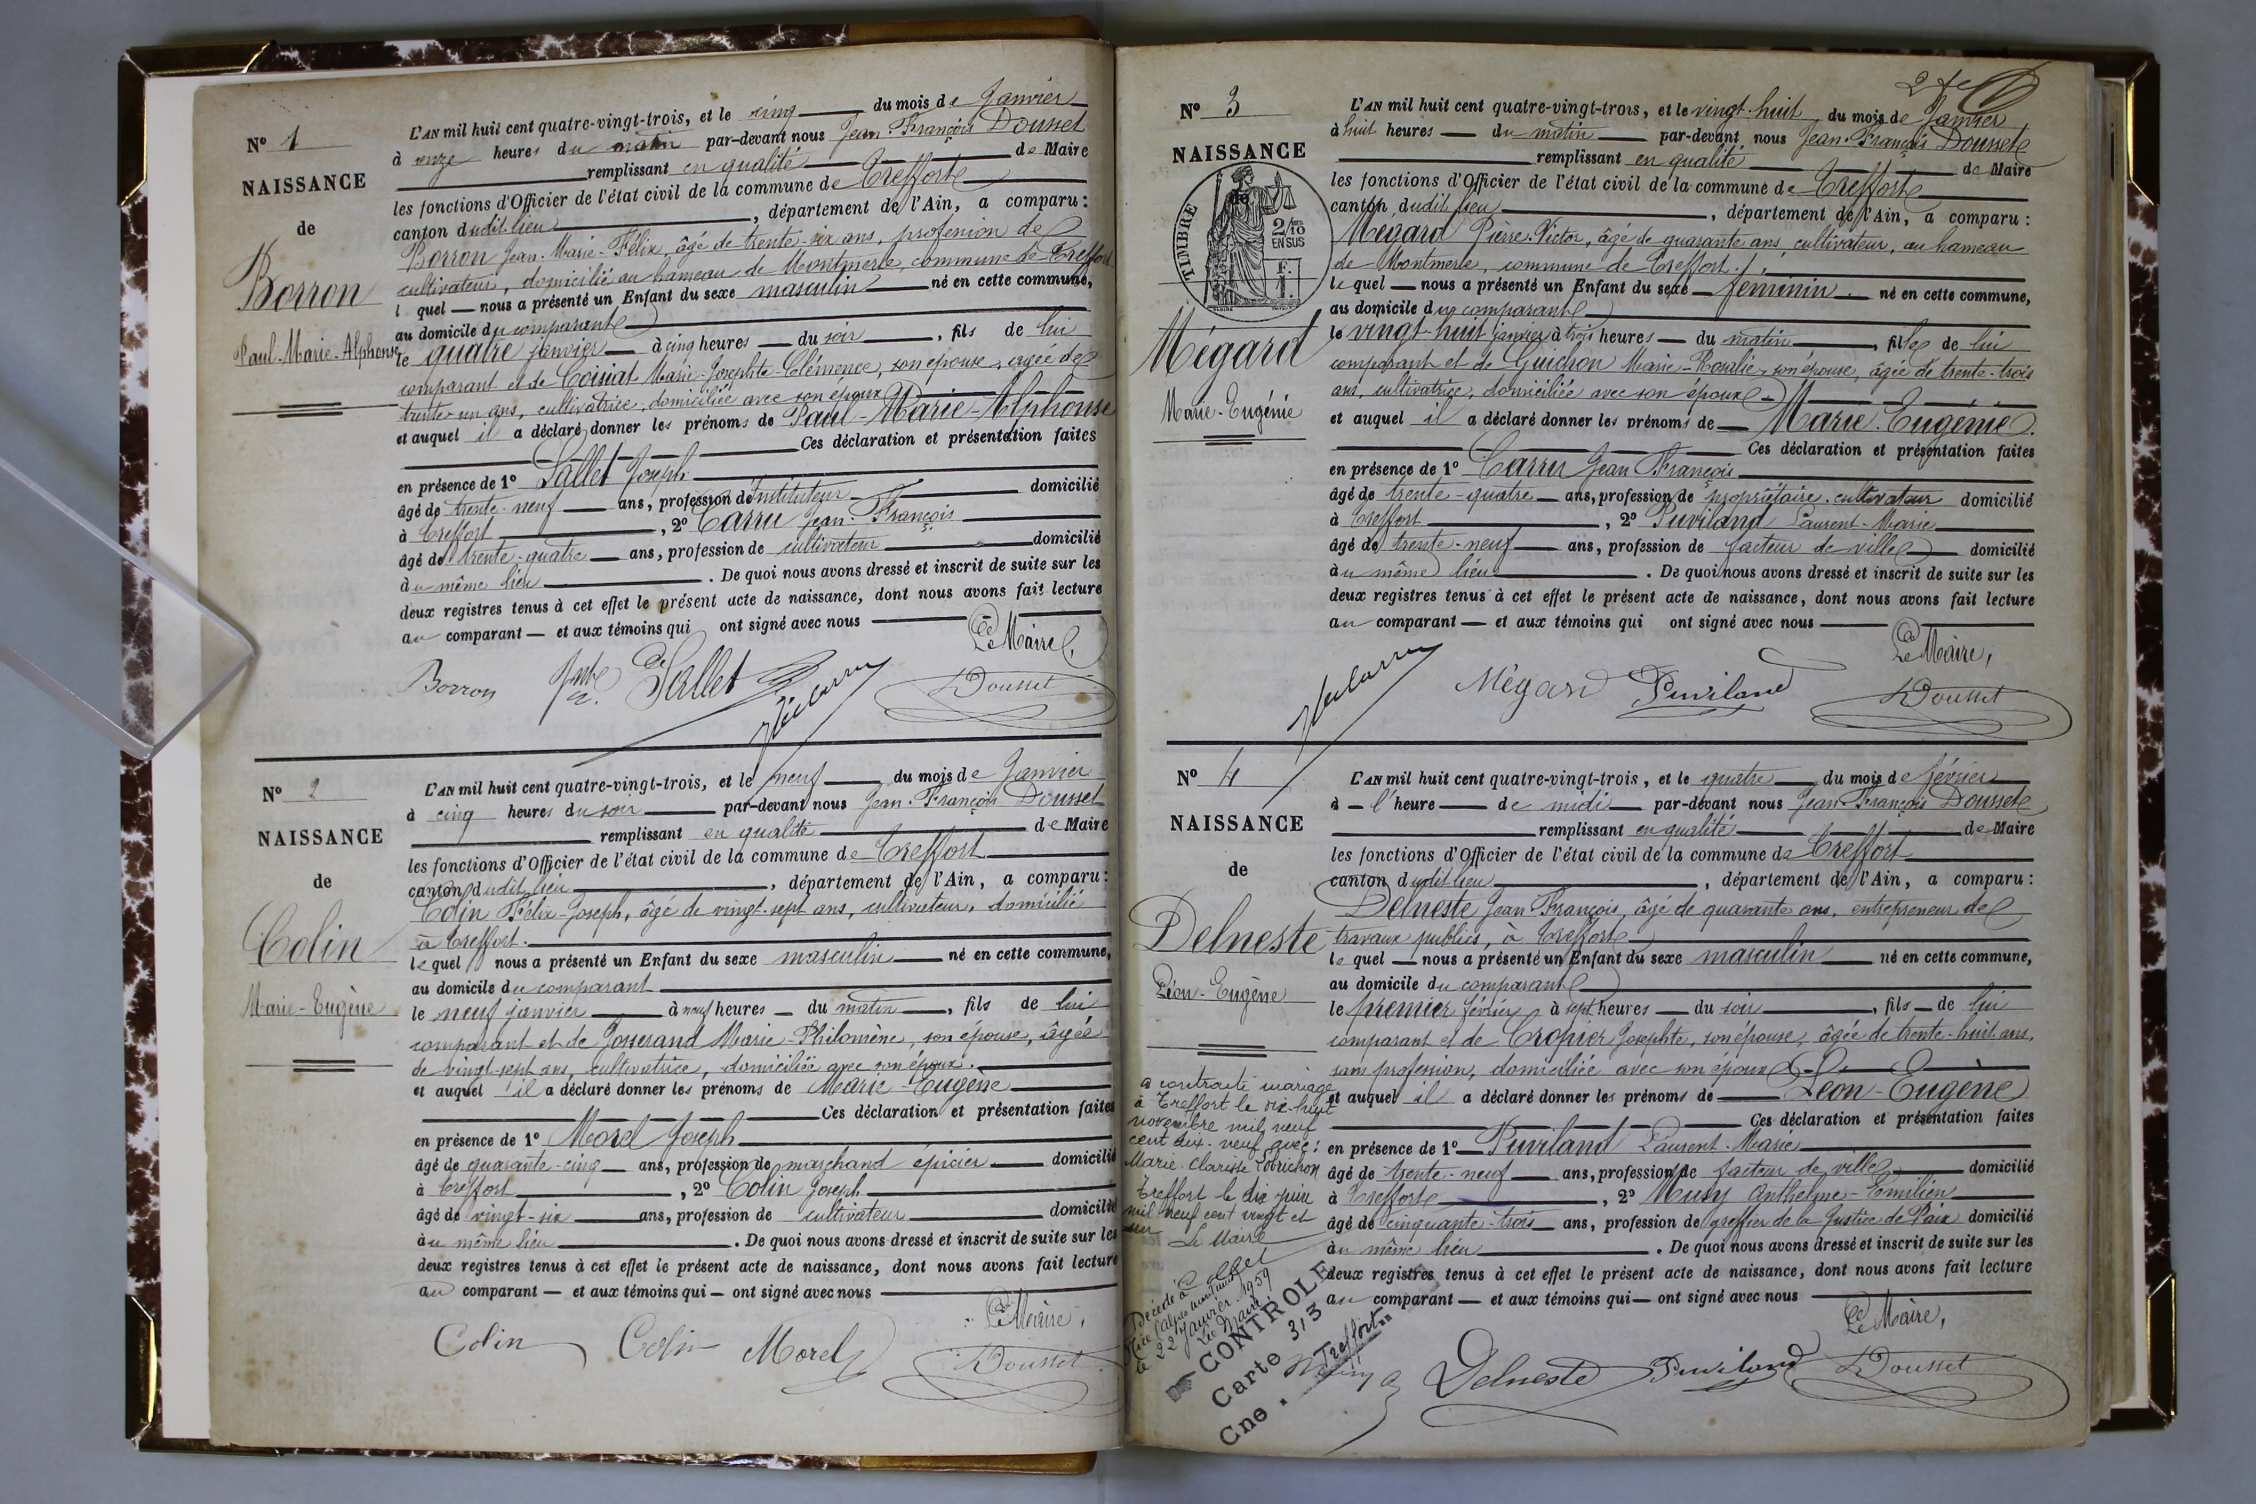 N° 1
NAISSANCE
de
Borron
Paul-Marie-Alphonse
L'AN mil huit cent quatre-vingt-trois, et le cinq du mois de Janvier
à onze heures du matin par-devant nous Jean-François Dousset
remplissant en qualité de Maire
les fonctions d'Officier de l'état civil de la commune de Treffort
canton dudit lieu, département de l'Ain, a comparu :
Borron Jean-Marie-Félix, âgé de trente-six ans, profession de
cultivateur, domicilié au hameau de Montmerle, commune de Treffort
lequel nous a présenté un Enfant du sexe masculin né en cette commune,
au domicile du comparant
le quatre janvier à cinq heures du soir, fils de lui
comparant et de Coisiat Marie-Josephte-Clémence, son épouse, âgée de
trente-un ans, cultivatrice, domiciliée avec son époux
et auquel il a déclaré donner les prénoms de Paul-Marie-Alphonse
Ces déclaration et présentation faites
en présence de 1° Sallet Joseph
âgé de trente-neuf ans, profession de Instituteur domicilié
à Treffort, 2° Carru Jean-François
âgé de trente-quatre ans, profession de cultivateur domicilié
au même lieu. De quoi nous avons dressé et inscrit de suite sur les
deux registres tenus à cet effet le présent acte de naissance, dont nous avons fait lecture
au comparant et aux témoins qui ont signé avec nous
Le Maire,
Borron Sallet Dousset
N° 2
NAISSANCE
de
Colin
Marie-Eugène
L'AN mil huit cent quatre-vingt-trois, et le neuf du mois de Janvier
à cinq heures du soir par-devant nous Jean-François Dousset
remplissant en qualité de Maire
les fonctions d'Officier de l'état civil de la commune de Treffort
canton dudit lieu, département de l'Ain, a comparu :
Colin Félix-Joseph, âgé de vingt-sept ans, cultivateur, domicilié
à Treffort.
lequel nous a présenté un Enfant du sexe masculin né en cette commune,
au domicile du comparant
le neuf janvier à neuf heures du matin, fils de lui
comparant et de Josserand Marie-Philomène, son épouse, âgée
de vingt-sept ans, cultivatrice, domiciliée avec son époux.
et auquel il a déclaré donner les prénoms de Marie-Eugène
Ces déclaration et présentation faites
en présence de 1° Morel Joseph
âgé de quarante-cinq ans, profession de marchand épicier domicilié
à Treffort, 2° Colin Joseph
âgé de vingt-six ans, profession de cultivateur domicilié
au même lieu. De quoi nous avons dressé et inscrit de suite sur les
deux registres tenus à cet effet le présent acte de naissance, dont nous avons fait lecture
au comparant et aux témoins qui ont signé avec nous
Le Maire,
Colin Colin Morel Dousset
N° 3
NAISSANCE
de
TIMBRE
2/10
EN SUS
F.
1
Mégard
Marie-Eugénie
L'AN mil huit cent quatre-vingt-trois, et le vingt-huit du mois de Janvier
à huit heures du matin par-devant nous Jean-François Dousset
remplissant en qualité de Maire
les fonctions d'Officier de l'état civil de la commune de Treffort
canton dudit lieu, département de l'Ain, a comparu :
Mégard Pierre-Victor, âgé de quarante ans, cultivateur, au hameau
de Montmerle, commune de Treffort.
lequel nous a présenté un Enfant du sexe féminin né en cette commune,
au domicile du comparant
le vingt-huit janvier à trois heures du matin, fille de lui
comparant et de Guichon Marie-Rosalie, son épouse, âgée de trente-trois
ans, cultivatrice, domiciliée avec son époux
et auquel il a déclaré donner les prénoms de Marie-Eugénie.
Ces déclaration et présentation faites
en présence de 1° Carru Jean François
âgé de trente-quatre ans, profession de propriétaire-cultivateur domicilié
à Treffort, 2° Puviland Laurent-Marie
âgé de trente-neuf ans, profession de facteur de ville domicilié
au même lieu. De quoi nous avons dressé et inscrit de suite sur les
deux registres tenus à cet effet le présent acte de naissance, dont nous avons fait lecture
au comparant et aux témoins qui ont signé avec nous
Le Maire,
Mégard Puviland Dousset
N° 4
NAISSANCE
de
Delneste
Léon-Eugène
L'AN mil huit cent quatre-vingt-trois, et le quatre du mois de février
à l'heure de midi par-devant nous Jean-François Dousset
remplissant en qualité de Maire
les fonctions d'Officier de l'état civil de la commune de Treffort
canton dudit lieu, département de l'Ain, a comparu :
Delneste Jean François, âgé de quarante ans, entrepreneur de
travaux publics, à Treffort
lequel nous a présenté un Enfant du sexe masculin né en cette commune,
au domicile du comparant
le premier février à sept heures du soir, fils de lui
comparant et de Cropier Josephte, son épouse, âgée de trente-huit ans,
sans profession, domiciliée avec son époux
et auquel il a déclaré donner les prénoms de Léon-Eugène
Ces déclaration et présentation faites
en présence de 1° Puviland Laurent-Marie
âgé de trente-neuf ans, profession de facteur de ville domicilié
à Treffort, 2° Musy Anthelme-Emilien
âgé de cinquante-trois ans, profession de greffier de la Justice de Paix domicilié
au même lieu. De quoi nous avons dressé et inscrit de suite sur les
deux registres tenus à cet effet le présent acte de naissance, dont nous avons fait lecture
au comparant et aux témoins qui ont signé avec nous
Le Maire,
Delneste Puviland Dousset
a contracté mariage
à Treffort le dix-huit
novembre mil neuf
cent dix-neuf avec :
Marie-Clarisse
Treffort le dix juin
mil neuf cent vingt et
un Le Maire
Décédé à
Nice (Alpes Maritimes)
le 22 Janvier 1959
Le Maire
CONTROLE
Carte 313
Cne. Treffort